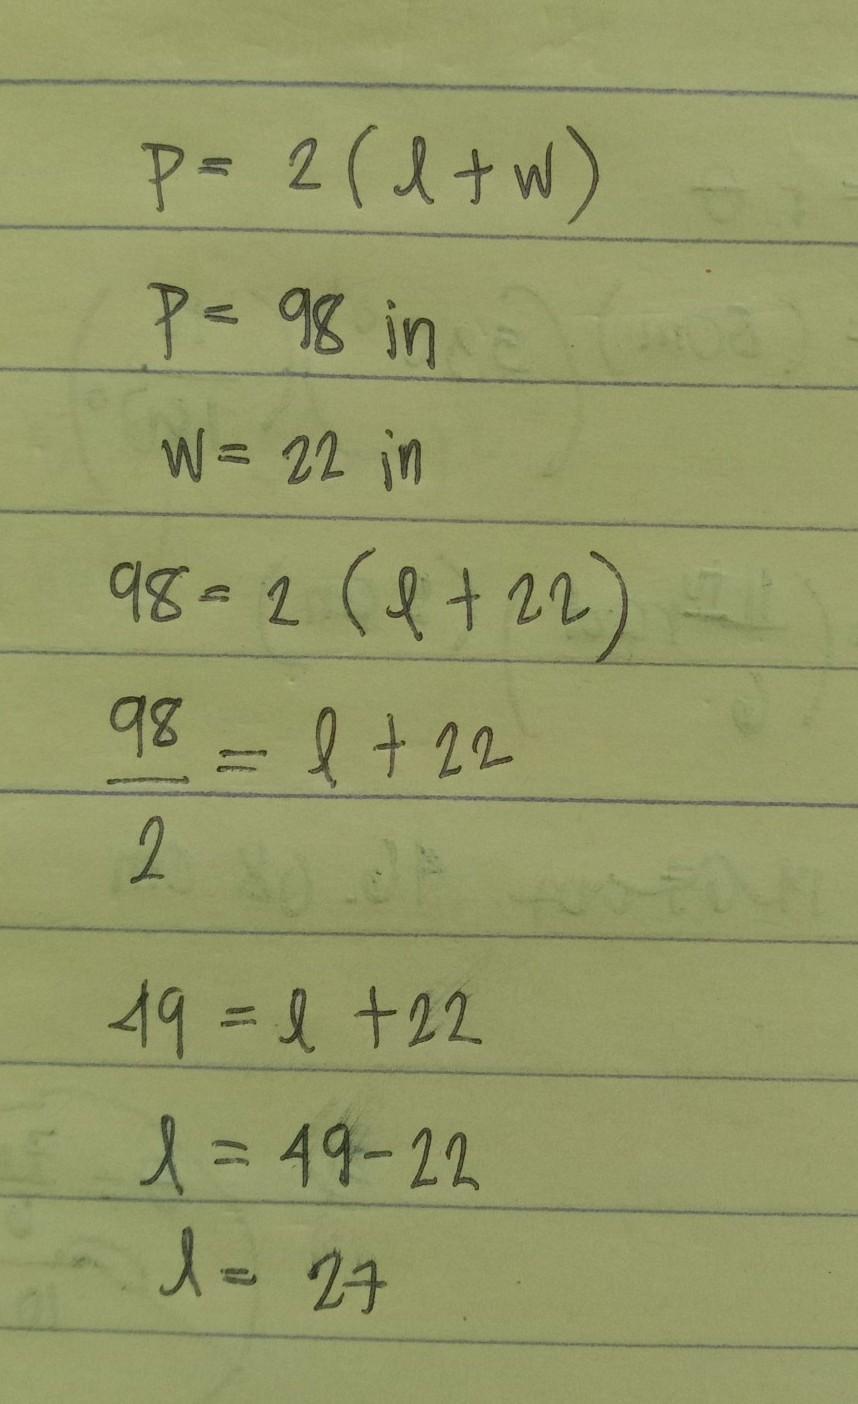 P = 2 ( l + w )
P = 98 in
W = 22 in
98 = 2 ( l + 22 )
98/2 = l + 22
49 = l + 22
l = 49 - 22
l = 27